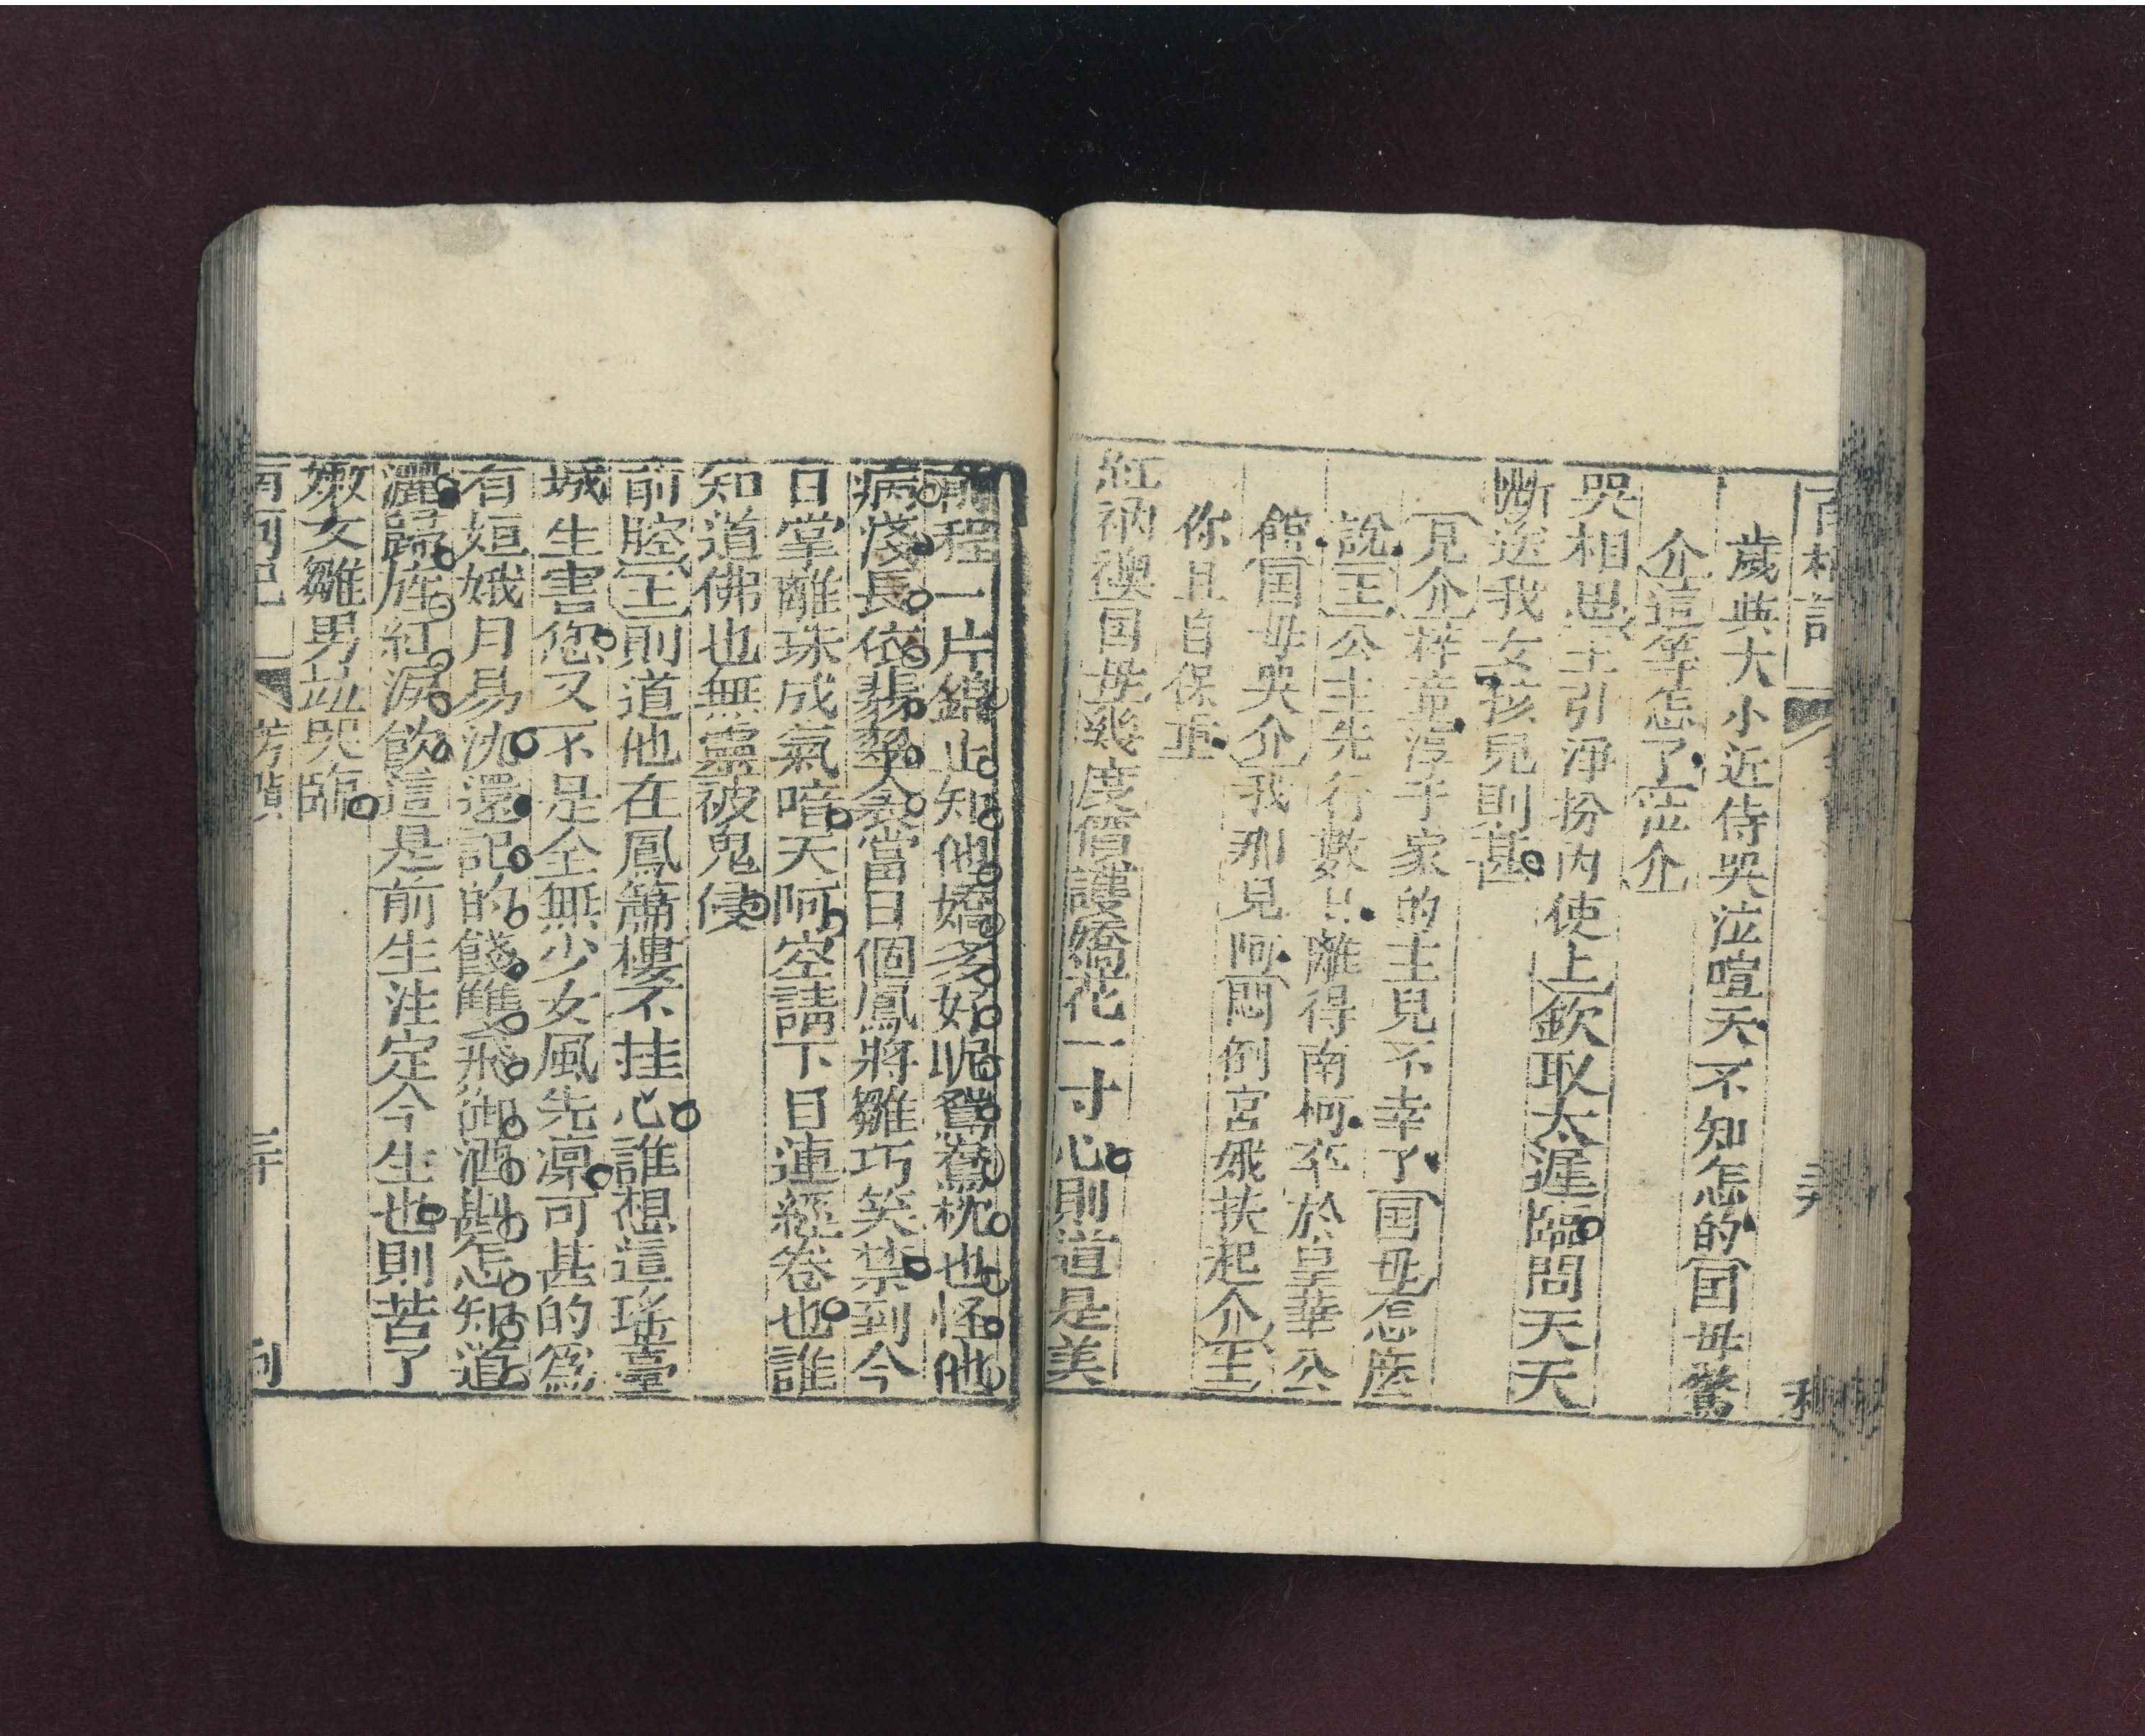 南柯記
歲與大小近侍哭泣喧天不知怎的国母驚
介這等怎了泣介
哭相思王引淨扮內使上欽取太遲臨問天天
斷送我女孩兒則甚
見介梓童淳于家的主兒不幸了国母怎麼
說王公主先行數日離得南柯不於皇華公
館国母哭介我那兒阿悶倒宮娥扶起介王
你且自保重
紅衲襖国母幾度價護嬌花一寸心則道是美
前程一片錦止知他嬌多好昵鴛鴦枕也怪他
病淺長依翡翠衾當日個鳳將雛巧笑禁到今
日掌離珠成氣喑天阿空請下目連經卷也誰
知道佛也無靈被鬼侵
前腔王則道他在鳳簫樓不挂心誰想這瑤臺
城生害您又不是全無少女風先凛可甚的爲
有姮娥月易沈還記的餞雙飛御酒斟怎知道
灑歸旌紅淚飲這是前生注定今生也則苦了
嫩女雛男並哭臨
南柯記 芳隕